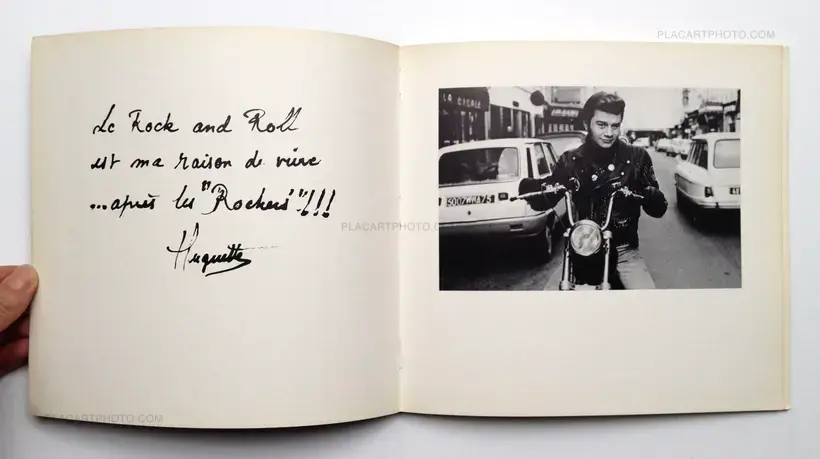 PLACARTPHOTO.COM
Le Rock and Roll
est ma raison de vivre
...après les "Rockers"!!!!
Huguette
PLACARTPHOTO.COM
PLACARTPHOTO.COM
LA CIGALE